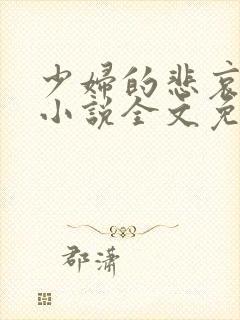 少婦的悲哀
小說全文免
郡潇